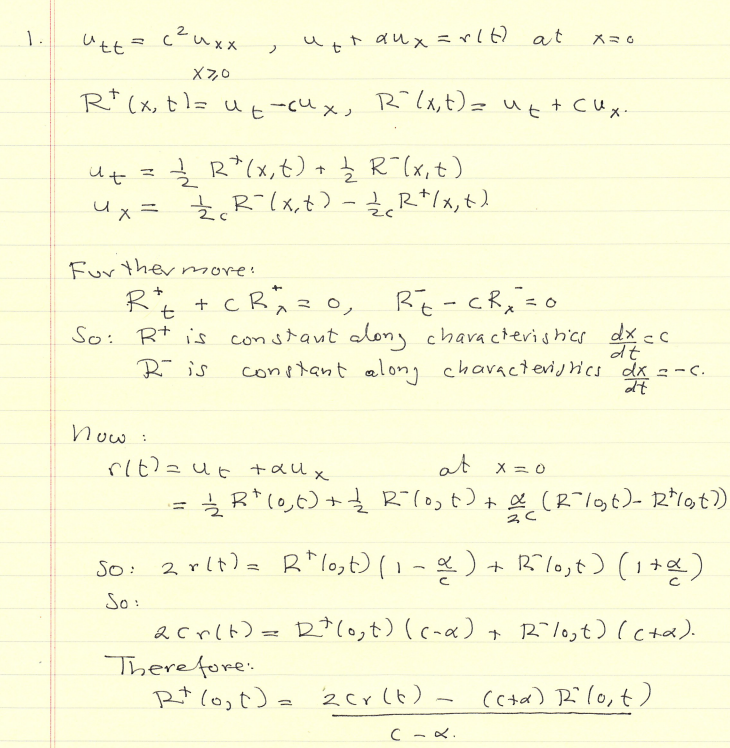 1. u_tt = c² u_xx , u_t + αu_x = r(t) at x=0
x≥0
R⁺(x,t) = u_t - cu_x, R⁻(x,t) = u_t + cu_x.
u_t = 1/2 R⁺(x,t) + 1/2 R⁻(x,t)
u_x = 1/2c R⁻(x,t) - 1/2c R⁺(x,t).
Furthermore:
R⁺_t + cR⁺_x = 0, R⁻_t - cR⁻_x = 0
So: R⁺ is constant along characteristics dx/dt = c
R⁻ is constant along characteristics dx/dt = -c.
Now:
r(t) = u_t + αu_x at x=0
= 1/2 R⁺(0,t) + 1/2 R⁻(0,t) + α/2c (R⁻(0,t) - R⁺(0,t))
So: 2r(t) = R⁺(0,t) (1 - α/c) + R⁻(0,t) (1 + α/c)
So:
2cr(t) = R⁺(0,t) (c-α) + R⁻(0,t) (c+α).
Therefore:
R⁺(0,t) = 2cr(t) - (c+α) R⁻(0,t)
c - α.